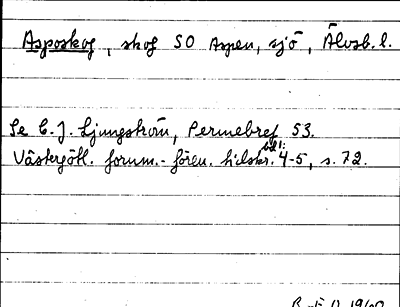 Asposkog, skog SO Aspen, sjö, Älvsb. l.
Se C. J. Ljungström, Permebref 53.
bd 1:
Västergötl. fornm.-fören. tidskr. 4-5, s. 72.